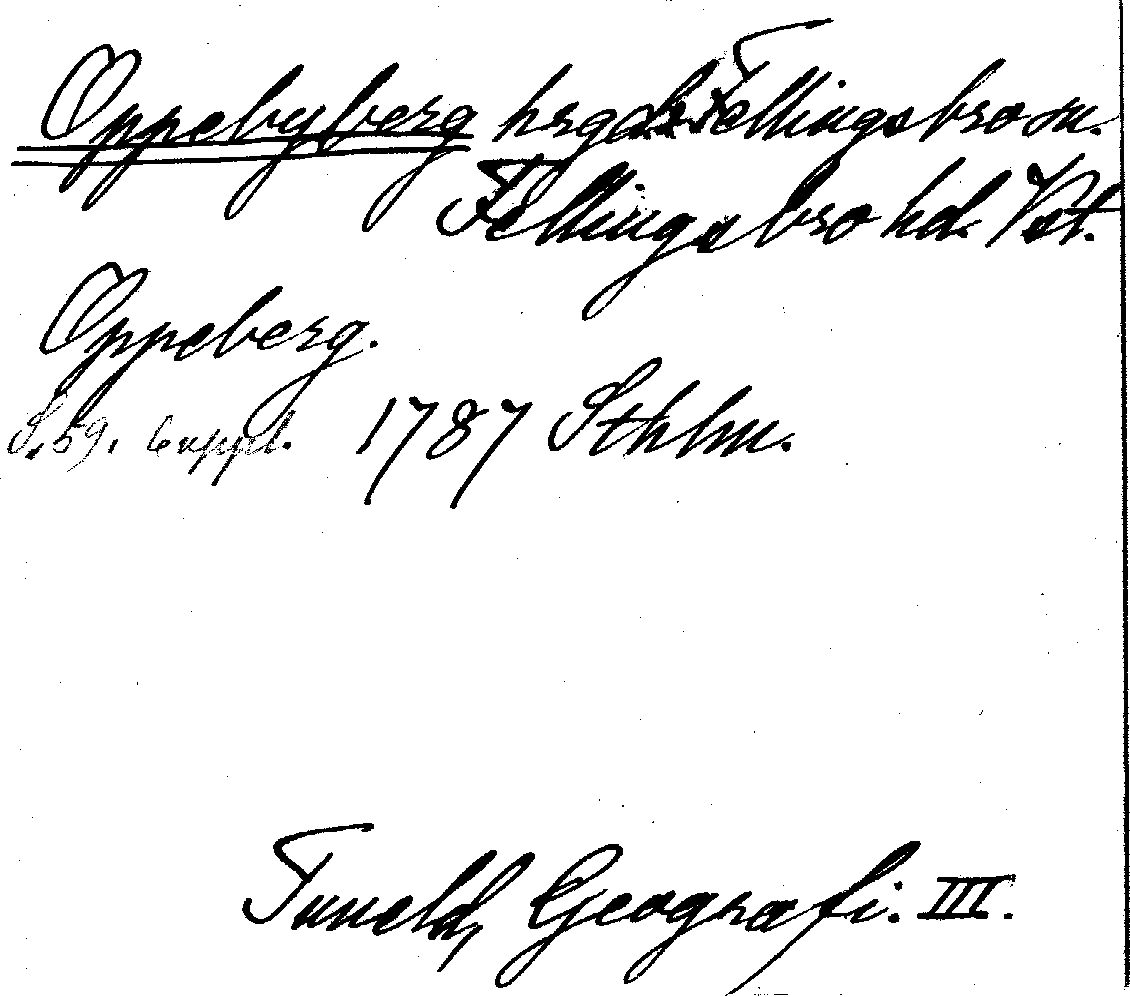 Oppebyberg hrgd. Fellingsbro sn.
Fellingsbro hd. Vst.
Oppeberg.
S. 59. 6 uppl. 1787 Sthlm.
Tuneld, Geografi. III.